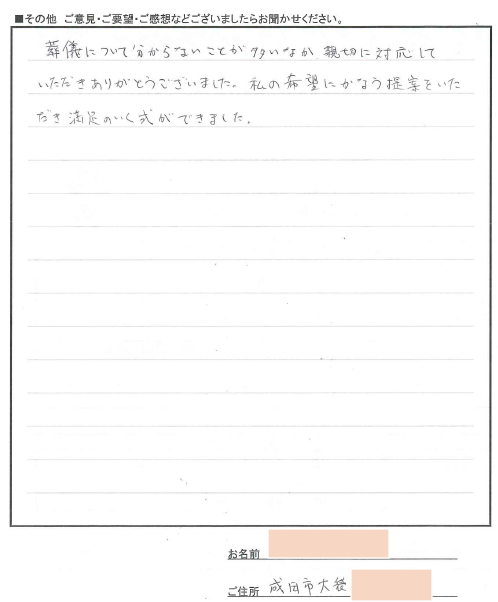 ■その他 ご意見・ご要望・ご感想などございましたらお聞かせください。
葬儀について分からないことが多いなか 親切に対応して
いただきありがとうございました。私の希望にかなう提案をいた
だき満足のいく式ができました。
お名前
ご住所 成田市大袋